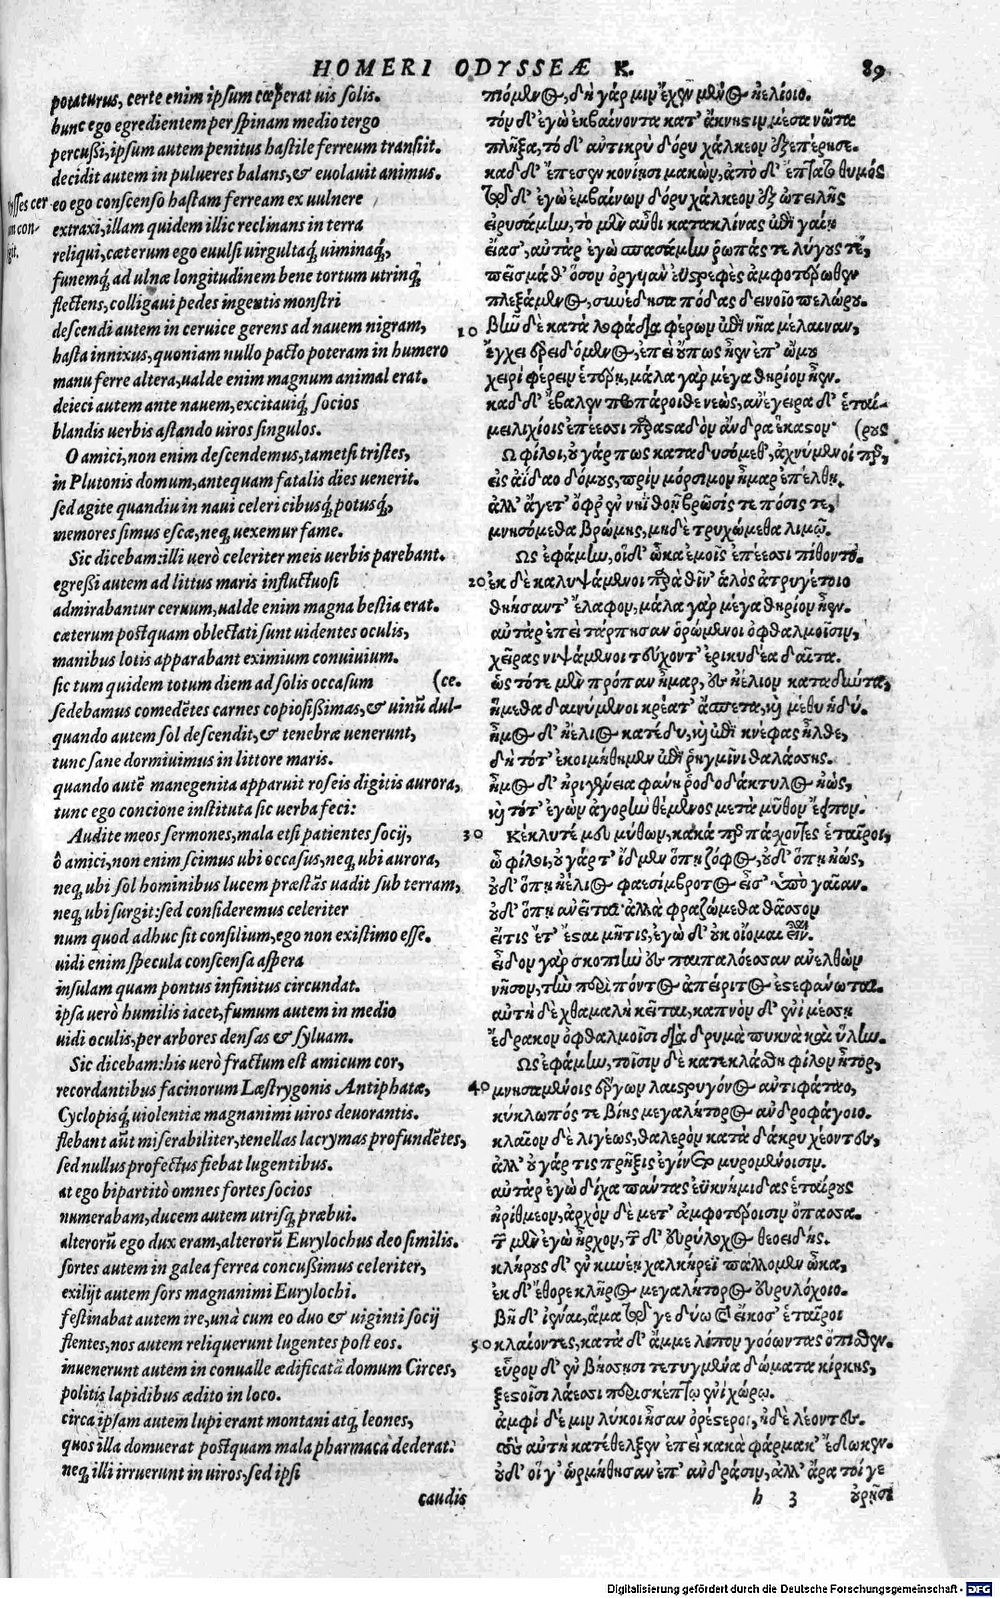 HOMERI ODYSSEÆ K. 89
potaturus, certe enim ipsum cœperat uis solis.
hunc ego egredientem per spinam medio tergo
percußi, ipsum autem penitus hastile ferreum transiit.
decidit autem in pulueres balans, & euolauit animus.
eo ego conscenso hastam ferream ex uulnere
extraxi, illam quidem illic reclinans in terra
reliqui, cæterum ego euulsi uirgultaq́, uiminaq́,
funemq́, ad ulnæ longitudinem bene tortum utrinq́,
flectens, colligaui pedes ingentis monstri
descendi autem in ceruice gerens ad nauem nigram,
hasta innixus, quoniam nullo pacto poteram in humero
manu ferre altera, ualde enim magnum animal erat.
deieci autem ante nauem, excitauiq́, socios
blandis uerbis astando uiros singulos.
O amici, non enim descendemus, tametsi tristes,
in Plutonis domum, antequam fatalis dies uenerit.
sed agite quandiu in naui celeri cibusq́, potusq́,
memores simus escæ, neq, uexemur fame.
Sic dicebam: illi uerò celeriter meis uerbis parebant.
egreßi autem ad littus maris influctuosi
admirabantur ceruum, ualde enim magna bestia erat.
cæterum postquam oblectati sunt uidentes oculis,
manibus lotis apparabant eximium conuiuium.
sic tum quidem totum diem ad solis occasum (ce.
sedebamus comedētes carnes copiosißimas, & uinū dul-
quando autem sol descendit, & tenebræ uenerunt,
tunc sane dormiuimus in littore maris.
quando autē manegenita apparuit roseis digitis aurora,
tunc ego concione instituta sic uerba feci:
Audite meos sermones, mala etsi patientes socij,
ô amici, non enim scimus ubi occasus, neq, ubi aurora,
neq, ubi sol hominibus lucem præstās uadit sub terram,
neq, ubi surgit: sed consideremus celeriter
num quod adhuc sit consilium, ego non existimo esse.
uidi enim specula conscensa aspera
insulam quam pontus infinitus circundat.
ipsa uerò humilis iacet, fumum autem in medio
uidi oculis, per arbores densas & syluam.
Sic dicebam: his uerò fractum est amicum cor,
recordantibus facinorum Læstrygonis Antiphatæ,
Cyclopisq́, uiolentiæ magnanimi uiros deuorantis.
flebant aūt miserabiliter, tenellas lacrymas profundētes,
sed nullus profectus fiebat lugentibus.
at ego bipartitò omnes fortes socios
numerabam, ducem autem utrisq, præbui.
alterorū ego dux eram, alterorū Eurylochus deo similis.
sortes autem in galea ferrea concußimus celeriter,
exilijt autem sors magnanimi Eurylochi.
festinabat autem ire, unà cum eo duo & uiginti socij
flentes, nos autem reliquerunt lugentes post eos.
inuenerunt autem in conualle ædificatā domum Circes,
politis lapidibus ædito in loco.
circa ipsam autem lupi erant montani atq, leones,
quos illa domuerat postquam mala pharmaca dederat:
neq, illi irruerunt in uiros, sed ipsi
caudis
πιόμενος, δὴ γάρ μιν ἔχεν μένος ἠελίοιο.
τὸν δ' ἐγὼ ἐκβαίνοντα κατ' ἄκνηστιν μέσα νῶτα
πλῆξα, τὸ δ' αὐτικρὺ δόρυ χάλκεον ἐξεπέρησε.
καδ δ' ἔπεσεν κονίησι μακὼν, ἀπὸ δ' ἔπτατο θυμός
τῷ δ' ἐγὼ ἐμβαίνων δόρυ χάλκεον ἐξ ὠτειλῆς
εἰρυσάμην, τὸ μὲν αὖθι κατακλίνας ἐπὶ γαίῃ
εἴασ', αὐτὰρ ἐγὼ σπασάμην ῥωπάς τε λύγους τέ,
πεῖσμά θ' ὅσον ὄργυιαν ἐϋστρεφὲς ἀμφοτέρωθεν
πλεξάμενος, συνέδησα πόδας δεινοῖο πελώρου.
10 βῆν δὲ κατὰ λοφάδια φέρων ἐπὶ νῆα μέλαιναν,
ἔγχει ἐρειδόμενος, ἐπεὶ οὔπως ἦεν ἐπ' ὤμου
χειρὶ φέρειν ἑτέρῃ, μάλα γὰρ μέγα θηρίον ἦεν.
καδ δ' ἔβαλεν προπάροιθε νεὼς, ἀνέγειρα δ' ἑταί-
μειλιχίοις ἐπέεσσι παρασαδὸν ἄνδρα ἕκαστον (ρους
Ω φίλοι, οὐ γάρ πως καταδυσόμεθ', ἀχνύμενοί περ,
εἰς ἀίδαο δόμους, πρὶν μόρσιμον ἦμαρ ἐπέλθῃ.
ἀλλ' ἄγετ' ὄφρ' ἐν νηῒ θοῇ βρῶσίς τε πόσις τε,
μνησόμεθα βρώμης, μηδὲ τρυχώμεθα λιμῷ.
Ως ἐφάμην, οἱ δ' ὦκα ἐμοῖς ἐπέεσσι πίθοντο.
20 ἐκ δὲ καλυψάμενοι παρὰ θῖν' ἁλὸς ἀτρυγέτοιο
θηήσαντ' ἔλαφον, μάλα γὰρ μέγα θηρίον ἦεν.
αὐτὰρ ἐπεὶ τάρπησαν ὁρώμενοι ὀφθαλμοῖσιν,
χεῖρας νιψάμενοι τεύχοντ' ἐρικυδέα δαῖτα.
ὣς τότε μὲν πρόπαν ἦμαρ, ἐς ἠέλιον καταδύντα,
ἥμεθα δαινύμενοι κρέατ' ἄσπετα, καὶ μέθυ ἡδύ.
ἦμος δ' ἠέλιος κατέδυ, καὶ ἐπὶ κνέφας ἦλθε,
δὴ τότ' ἐκοιμήθημεν ἐπὶ ῥηγμῖνι θαλάσσης.
ἦμος δ' ἠριγένεια φάνη ῥοδοδάκτυλος ἠώς,
καὶ τότ' ἐγὼν ἀγορὴν θέμενος μετὰ μῦθον ἔειπον.
30 Κέκλυτέ μου μύθων, κακά περ πάσχοντες ἑταῖροι,
ὦ φίλοι, οὐ γάρ τ' ἴδμεν ὅπῃ ζόφος, οὐδ' ὅπῃ ἠώς,
οὐδ' ὅπῃ ἠέλιος φαεσίμβροτος εἶσ' ὑπὸ γαῖαν.
οὐδ' ὅπῃ ἀνεῖται· ἀλλὰ φραζώμεθα θᾶσσον
εἴ τις ἔτ' ἔσται μῆτις, ἐγὼ δ' οὐκ οἴομαι εἶναι.
εἶδον γὰρ σκοπιὴν ἐς παιπαλόεσσαν ἀνελθὼν
νῆσον, τὴν πέρι πόντος ἀπείριτος ἐστεφάνωται.
αὐτὴ δὲ χθαμαλὴ κεῖται, καπνὸν δ' ἐνὶ μέσσῃ
ἔδρακον ὀφθαλμοῖσι διὰ δρυμὰ πυκνὰ καὶ ὕλην.
Ως ἐφάμην, τοῖσιν δὲ κατεκλάσθη φίλον ἦτορ,
40 μνησαμένοις ἔργων λαιστρυγόνος αὐτιφάταο,
κύκλωπός τε βίης μεγαλήτορος ἀνδροφάγοιο.
κλαῖον δὲ λιγέως, θαλερὸν κατὰ δάκρυ χέοντες,
ἀλλ' οὐ γάρ τις πρῆξις ἐγίνετο μυρομένοισιν.
αὐτὰρ ἐγὼ δίχα πάντας ἐϋκνήμιδας ἑταίρους
ἠρίθμεον, ἀρχὸν δὲ μετ' ἀμφοτέροισιν ὄπασσα.
τῶν μὲν ἐγὼν ἦρχον, τῶν δ' εὐρύλοχος θεοειδής.
κλήρους δ' ἐν κυνέῃ χαλκήρεϊ πάλλομεν ὦκα,
ἐκ δ' ἔθορε κλῆρος μεγαλήτορος εὐρυλόχοιο.
Βῆ δ' ἰέναι, ἅμα τῷ γε δύω καὶ εἴκοσ' ἑταῖροι
50 κλαίοντες, κατὰ δ' ἄμμε λίπον γοόωντας ὄπισθεν.
εὗρον δ' ἐν βήσσῃσι τετυγμένα δώματα κίρκης,
ξεστοῖσι λάεσσι περισκέπτῳ ἐνὶ χώρῳ.
ἀμφὶ δέ μιν λύκοι ἦσαν ὀρέστεροι, ἠδὲ λέοντες.
τοὺς αὐτὴ κατέθελξεν ἐπεὶ κακὰ φάρμακ' ἔδωκεν.
οὐδ' οἵ γ' ὡρμήθησαν ἐπ' ἀνδράσιν, ἀλλ' ἄρα τοί γε
h 3 οὐρῇσι
Digitalisierung gefördert durch die Deutsche Forschungsgemeinschaft - DFG